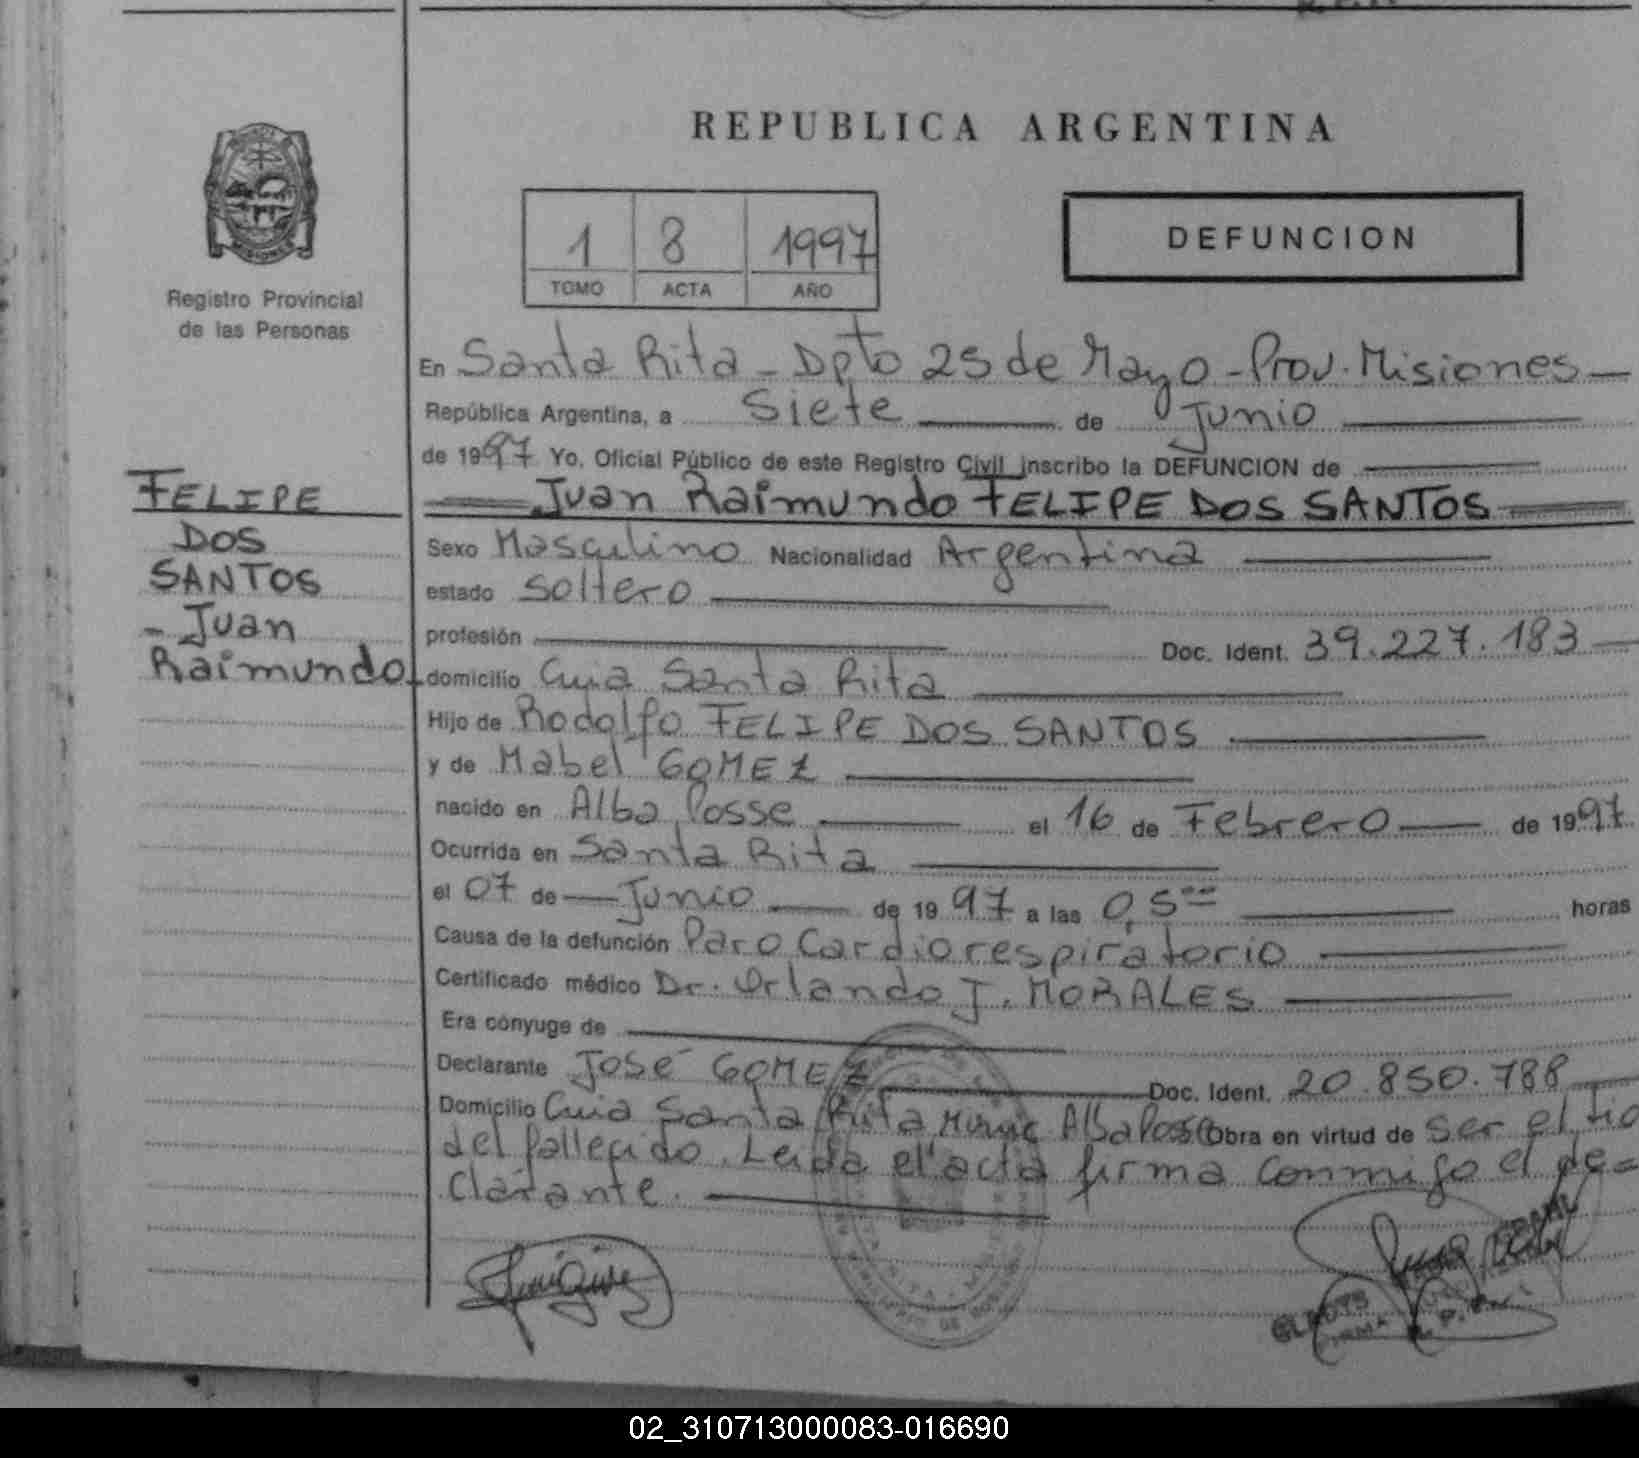 REPUBLICA ARGENTINA
DEFUNCION
1 8 1997
TOMO ACTA AÑO
Registro Provincial
de las Personas
En Santa Rita - Dpto 25 de Mayo - Prov. Misiones
República Argentina, a Siete de Junio
de 1997 Yo, Oficial Público de este Registro Civil inscribo la DEFUNCION de
Juan Raimundo FELIPE DOS SANTOS
FELIPE
DOS
SANTOS
- Juan
Raimundo
Sexo Masculino Nacionalidad Argentina
estado Soltero
profesión Doc. Ident. 39.227.183
domicilio Cuia Santa Rita
Hijo de Rodolfo FELIPE DOS SANTOS
y de Mabel GOMEZ
nacido en Alba Posse el 16 de Febrero de 1997
Ocurrida en Santa Rita
el 07 de Junio de 1997 a las 0,5°° horas
Causa de la defunción Paro Cardiorespiratorio
Certificado médico Dr. Orlando J. MORALES
Era cónyuge de
Declarante José GOMEZ Doc. Ident. 20.850.788
Domicilio Cuia Santa Rita Alba Posse Obra en virtud de ser el tio
del fallecido. Leida el acta firma conmigo el de=
clarante.
GLADYS
FIRMA
02_310713000083-016690